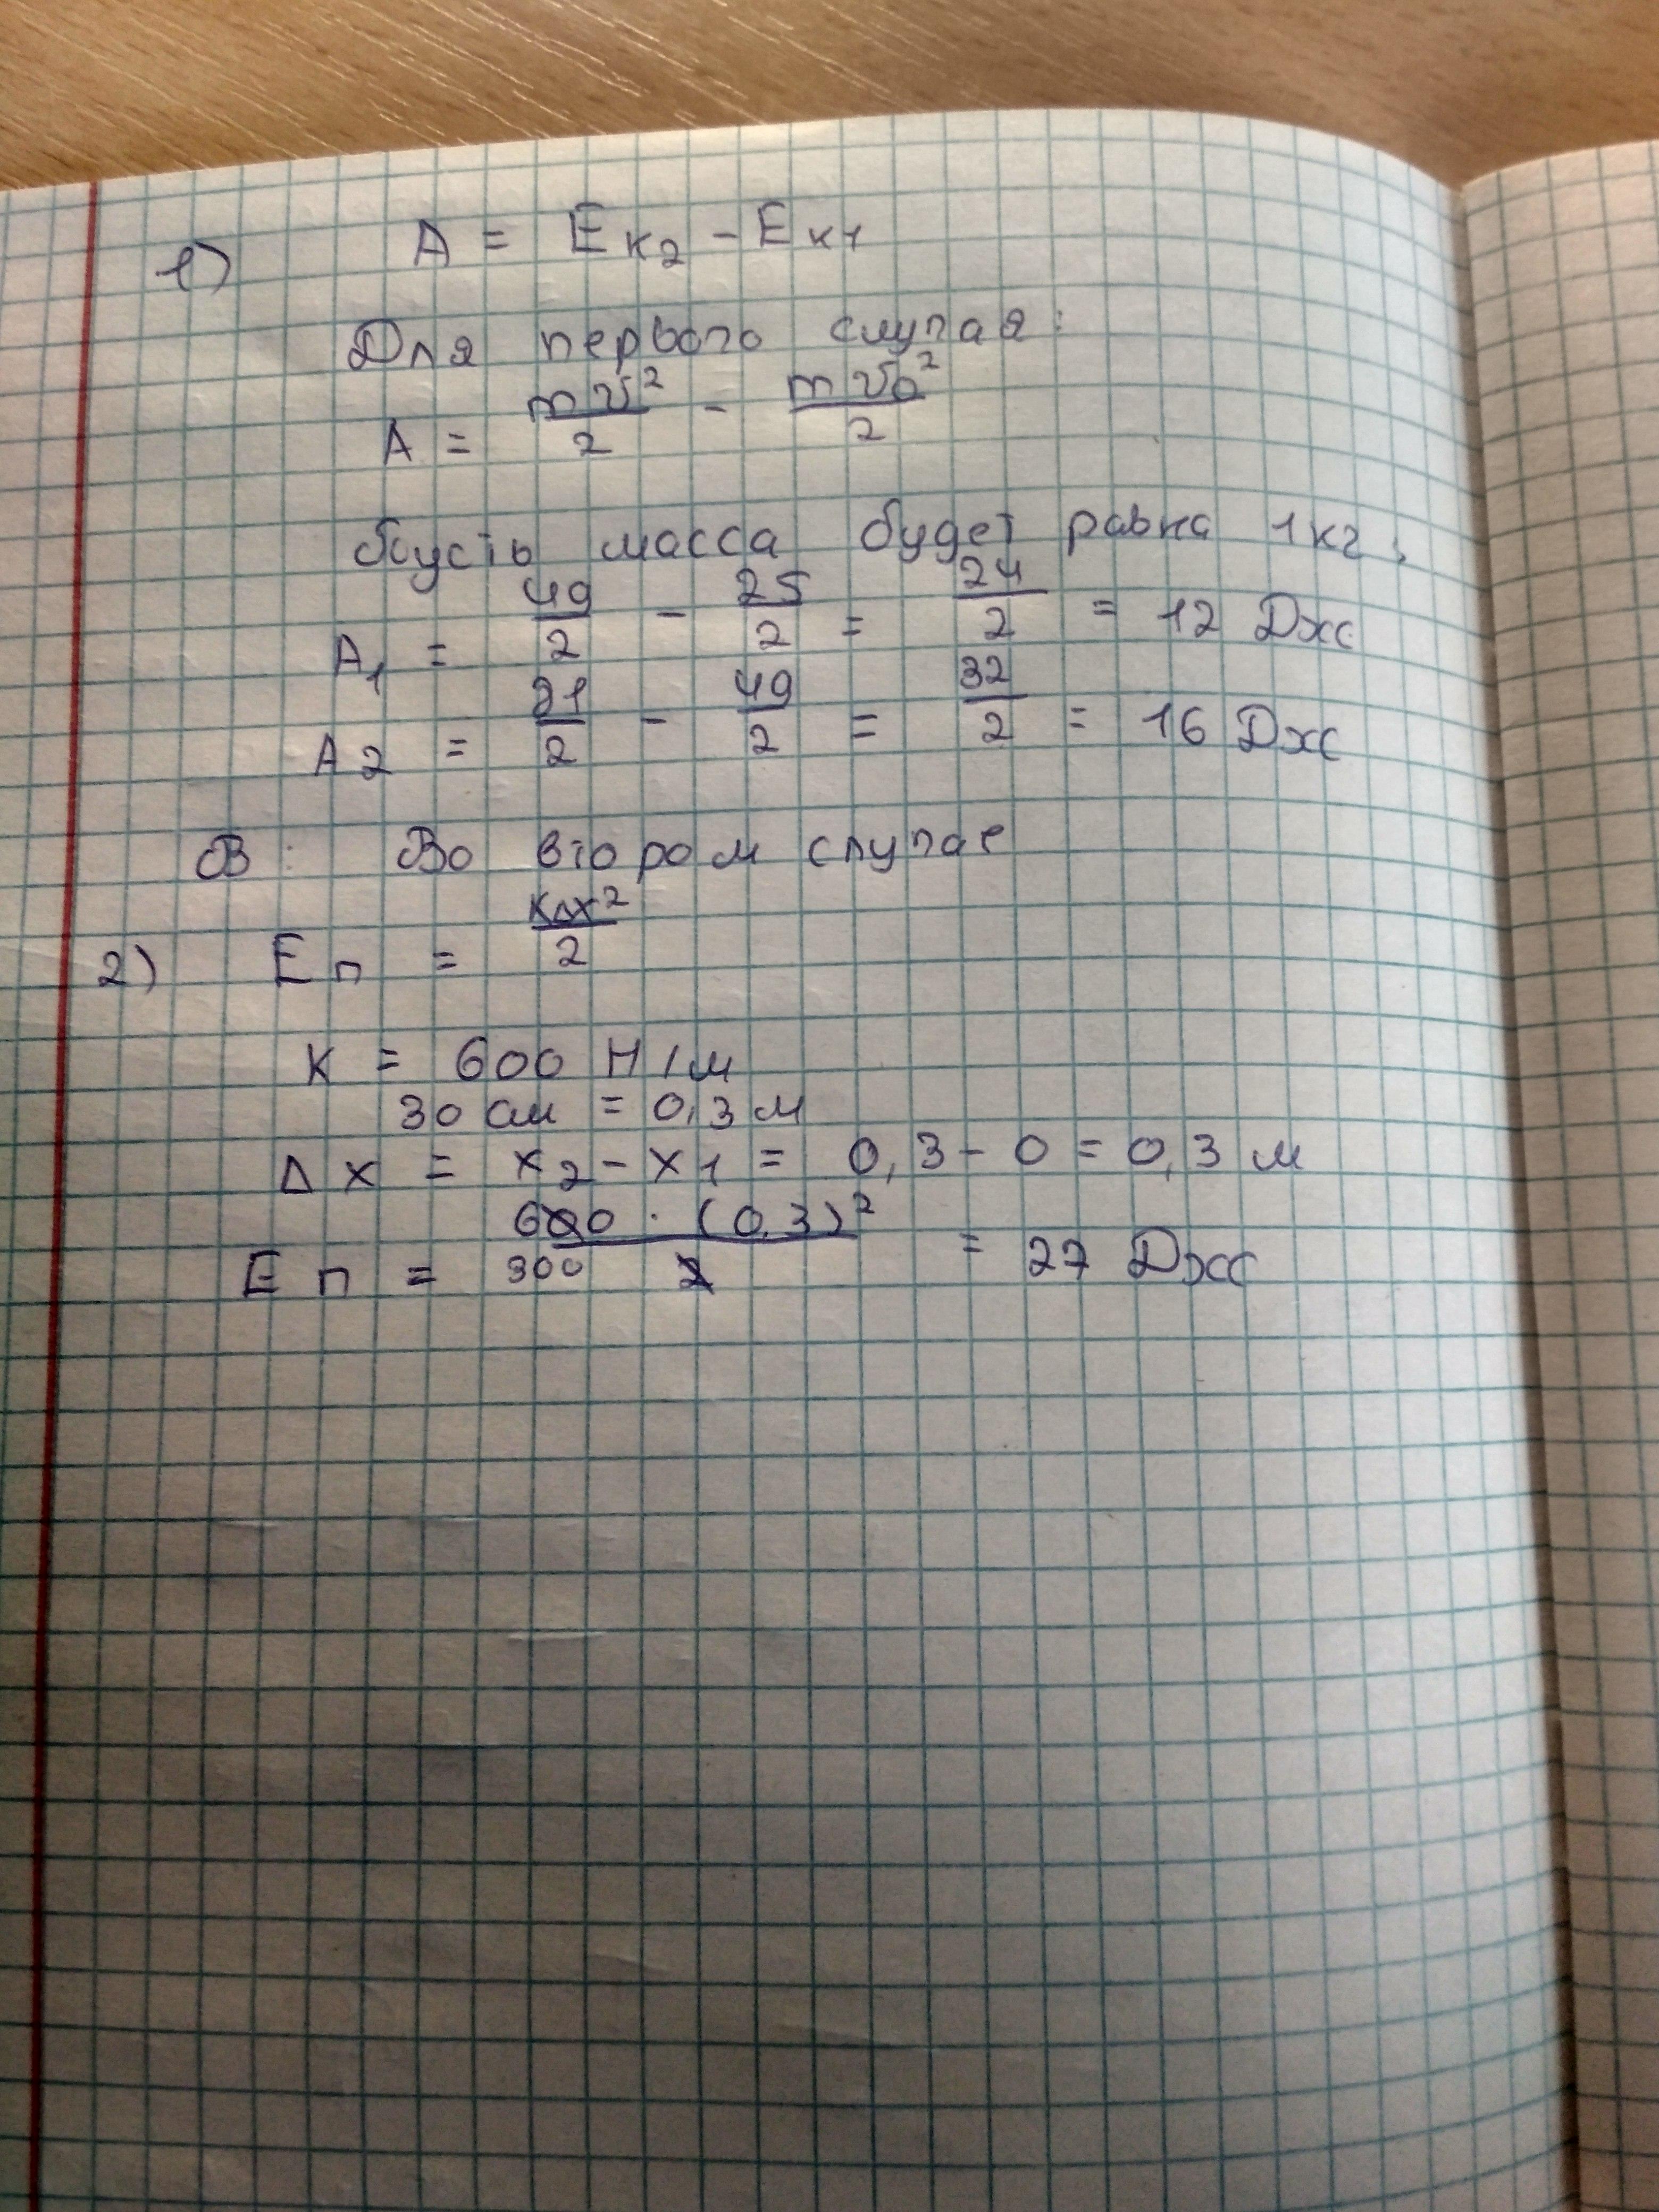 1) A = Eк2 - Eк1
Для первого случая:
A = mV²/2 - mV₀²/2
Пусть масса будет равна 1 кг,
A₁ = 49/2 - 25/2 = 24/2 = 12 Дж
A2 = 81/2 - 49/2 = 32/2 = 16 Дж
В: Во втором случае
2) Eп = кΔx²/2
К = 600 Н/м
30 см = 0,3 м
Δx = x₂ - x₁ = 0,3 - 0 = 0,3 м
Eп = 600 · (0,3)²/2 = 27 Дж
300